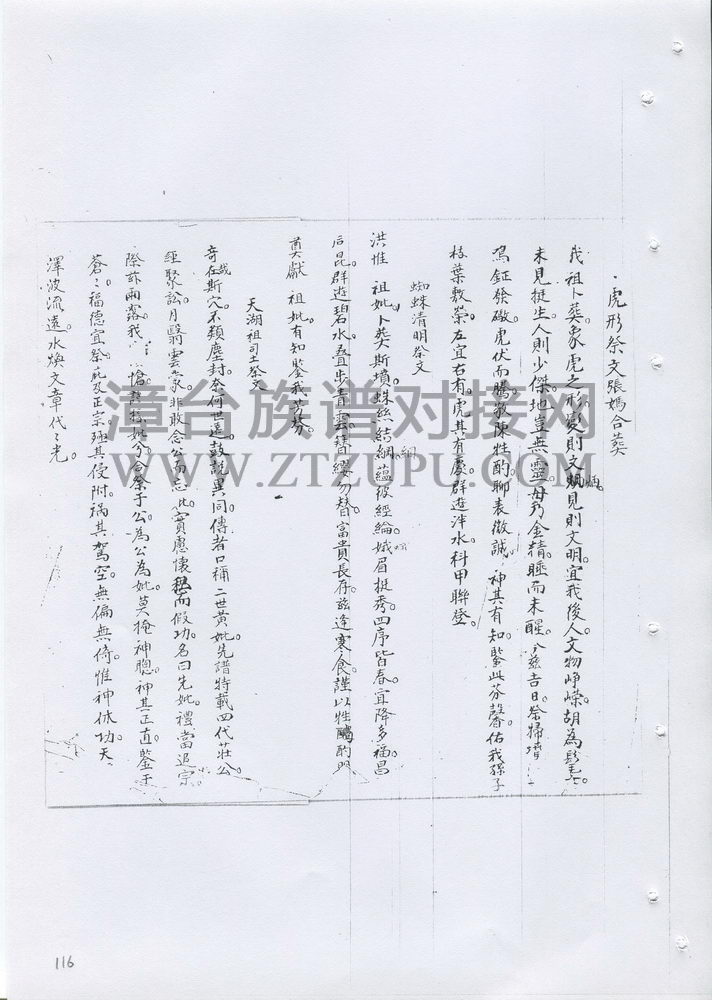 虎形祭文張媽合葬
我祖卜葬象虎之形。變則文炳。見則文明宜我後人文物崢嶸。胡為髦士。
未見挺生。人則少傑。地豈無靈。毋乃金精。睡而未醒。今茲吉日祭掃墳
鳴鉦發礮。虎伏而騰敬陳牲酌聊表微誠。神其有知。鑒此芬馨佑我孫子
枝葉敷榮。左宜右有。虎其有慶。群遊泮水科甲聯登。
蜘蛛清明祭文
洪惟 祖妣。卜葬斯墳。蛛絲結網。蘊彼經綸。娥眉挺秀。四序皆春。宜降多福。昌
后昆。群遊碧水。叠步青雲。簪纓勿替。富貴長存。茲逢寒食。謹以牲酌
奠獻 祖妣。有知鑒我芳芬。
天湖祖司土祭文
奇哉斯穴。不類塵封。奈何世遠。鼓說異同。傳者口稱二世黃妣。先譜特載四代莊公
經聚訟。月翳雲蒙。非敢念公而忘妣。實慮懷 而假功。名曰先妣。禮當追宗。
際茲雨露。我 愴 妣分合祭于公。為公為妣。莫掩神聰。神其正直。鑒于
蒼々。福德宜祭。庇及正宗。殛其侵附。禍其駕空。無偏無倚。惟神休功。天
澤波流遠。水煥文章代々光。
漳台族谱对接网
WWW.ZTZUPU.COM
116